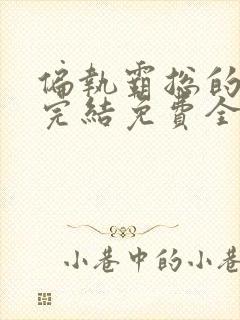 偏執霸總的
完結免費全
小巷中的小巷